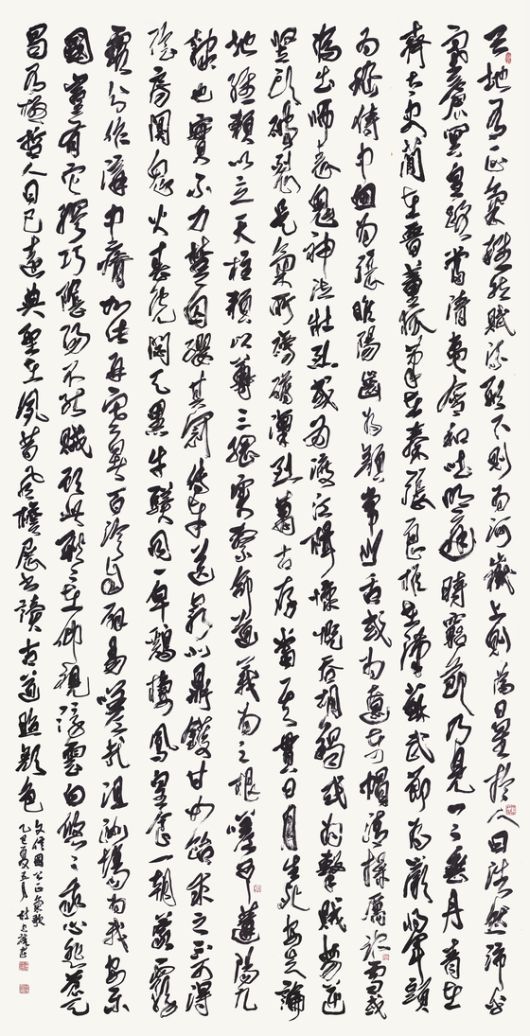 天地有正氣雜然賦流形下則為河嶽上則為日星於人曰浩然沛乎
塞蒼冥皇路當清夷含和吐明庭時窮節乃見一一垂丹青在
齊太史簡在晉董狐筆在秦張良椎在漢蘇武節為嚴將軍頭
為嵇侍中血為張睢陽齒為顏常山舌或為遼東帽清操厲冰雪或
為出師表鬼神泣壯烈或為渡江楫慷慨吞胡羯或為擊賊笏逆
豎頭破裂是氣所磅礴凜烈萬古存當其貫日月生死安足論
地維賴以立天柱賴以尊三綱實系命道義為之根嗟予遘陽九
隸也實不力楚囚纓其冠傳車送窮北鼎鑊甘如飴求之不可得
陰房闃鬼火春院閟天黑牛驥同一皂雞棲鳳皇食一朝蒙霧
露分作溝中瘠如此再寒暑百沴自辟易嗟哉沮洳場為我安樂
國豈有它繆巧陰陽不能賊顧此耿々在仰視浮雲白悠々我心悲蒼天
曷有極哲人日已遠典型在夙昔風檐展書讀古道照顏色
文信國公正氣歌
乙巳夏五月